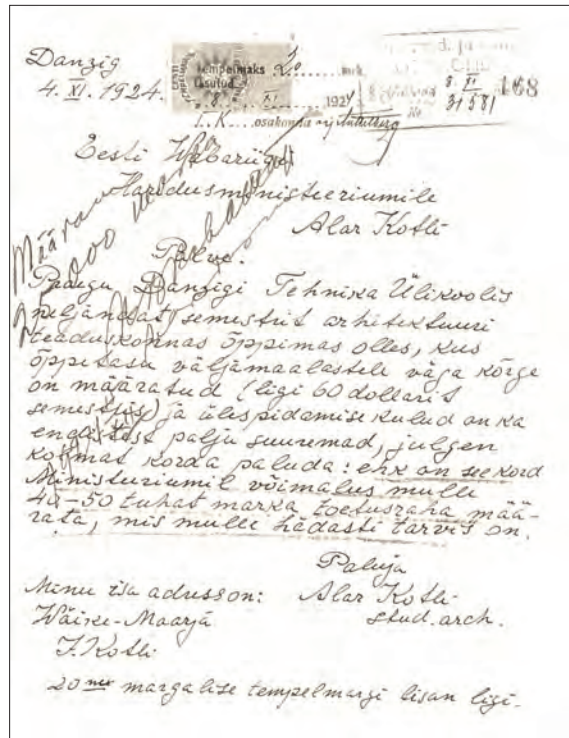 Danzig
4. XI. 1924.
Tempelmaks
tasutud
mrk.
8. XI. 1924
I. K. osakonna
8. XI
31581
168
Eesti Wabariigi
Haridusministeeriumile
Alar Kotli
Palve.
Määrata
Praegu Danzigi Tehnika Ülikoolis
neljandat semestrit arhitektuuri
teaduskonnas õppimas olles, kus
õppetasu väljamaalastele väga kõrge
on määratud (ligi 60 dollarit
semestris) ja ülespidamise kulud on ka
endistest palju suuremad, julgen
kolmat korda paluda: ehk on seekord
Ministeeriumil võimalus mulle
40-50 tuhat marka toetusraha mää-
rata, mis mulle hädasti tarvis on.
Paluja
Menu isa adress on: Alar Kotli
Wäike-Maarja stud. arch.
J. Kotli
20 ne margalise tempelmargi lisan ligi.